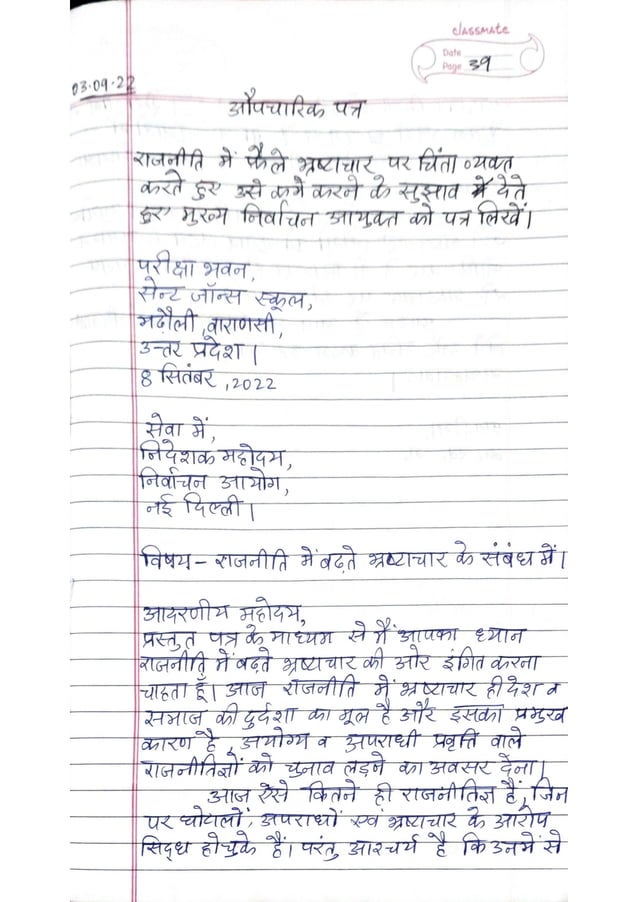 classmate
Date
Page 39
03.09.22
औपचारिक पत्र
राजनीति में फैले भ्रष्टाचार पर चिंता व्यक्त
करते हुए उसे कम करने के सुझाव में देते
हुए मुख्य निर्वाचन आयुक्त को पत्र लिखें।
परीक्षा भवन,
सेन्ट जॉन्स स्कूल,
मढ़ौली, वाराणसी,
उत्तर प्रदेश।
8 सितंबर, 2022
सेवा में,
निदेशक महोदय,
निर्वाचन आयोग,
नई दिल्ली।
विषय - राजनीति में बढ़ते भ्रष्टाचार के संबंध में।
आदरणीय महोदय,
प्रस्तुत पत्र के माध्यम से मैं आपका ध्यान
राजनीति में बढ़ते भ्रष्टाचार की ओर इंगित करना
चाहता हूँ। आज राजनीति में भ्रष्टाचार ही देश व
समाज की दुर्दशा का मूल है और इसका प्रमुख
कारण है, अयोग्य व अपराधी प्रवृत्ति वाले
राजनीतिज्ञों को चुनाव लड़ने का अवसर देना।
आज ऐसे कितने ही राजनीतिज्ञ हैं, जिन
पर घोटालों, अपराधों एवं भ्रष्टाचार के आरोप
सिद्ध हो चुके हैं। परंतु आश्चर्य है कि उनमें से